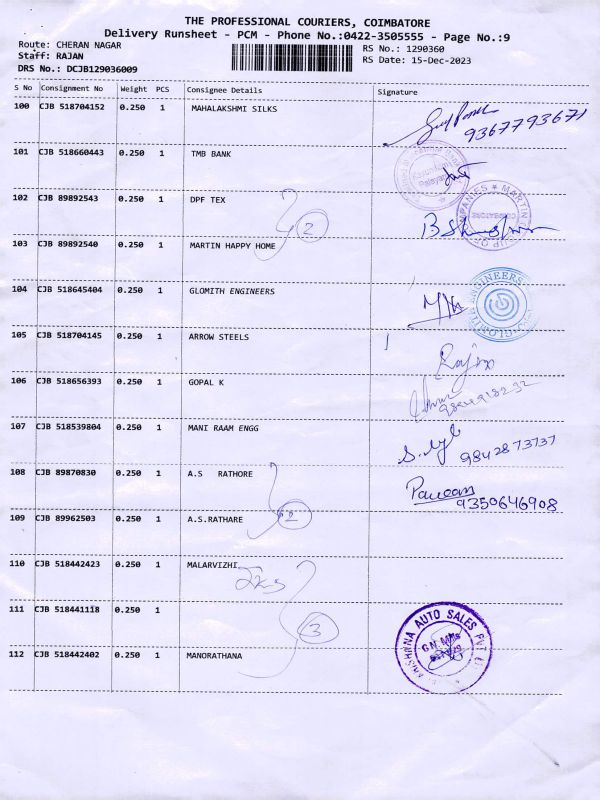 THE PROFESSIONAL COURIERS, COIMBATORE
Delivery Runsheet - PCM - Phone No.:0422-3505555 - Page No.:9
Route: CHERAN NAGAR RS No.: 1290360
Staff: RAJAN RS Date: 15-Dec-2023
DRS No.: DCJB129036009
S No Consignment No Weight PCS Consignee Details Signature
100 CJB 518704152 0.250 1 MAHALAKSHMI SILKS
9367793671
101 CJB 518660443 0.250 1 TMB BANK
102 CJB 89892543 0.250 1 DPF TEX
MARTIN
2
103 CJB 89892540 0.250 1 MARTIN HAPPY HOME
104 CJB 518645404 0.250 1 GLOMITH ENGINEERS
ENGINEERS
105 CJB 518704145 0.250 1 ARROW STEELS
106 CJB 518656393 0.250 1 GOPAL K
107 CJB 518539804 0.250 1 MANI RAAM ENGG
9842873737
108 CJB 89870830 0.250 1 A.S RATHORE
9350646908
2
109 CJB 89962503 0.250 1 A.S.RATHARE
110 CJB 518442423 0.250 1 MALARVIZHI
111 CJB 518441118 0.250 1
3
AUTO SALES PVT
112 CJB 518442402 0.250 1 MANORATHANA